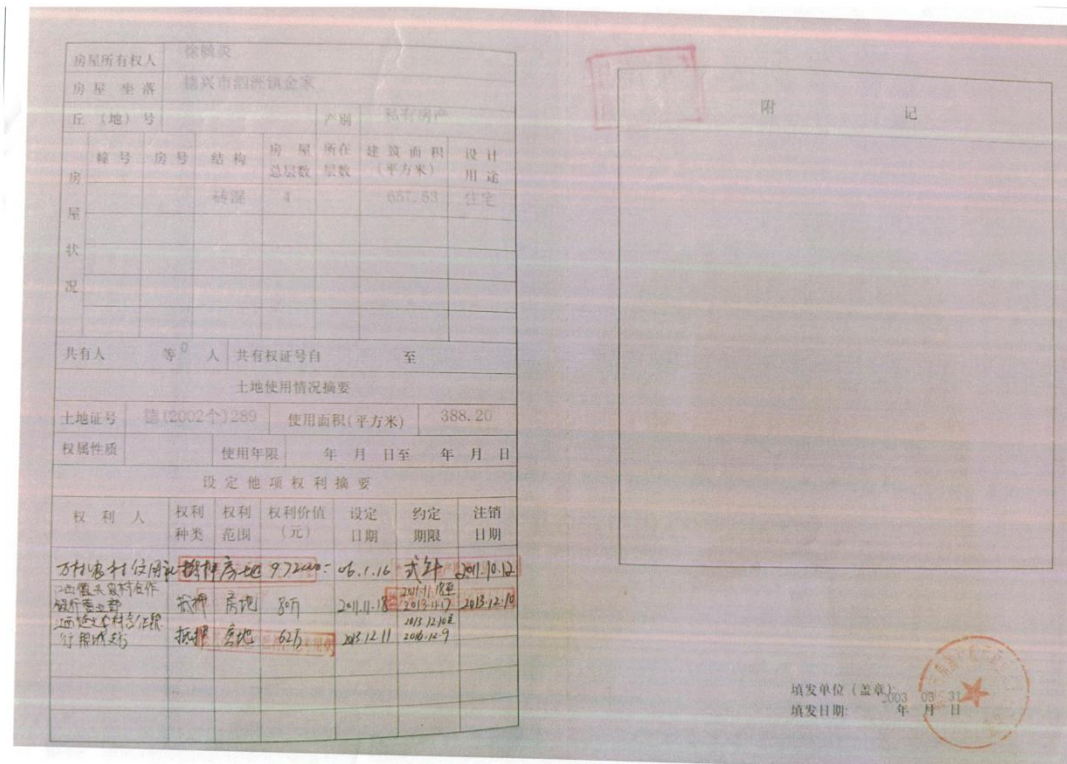 房屋所有权人
房屋坐落 德兴市泗洲镇金家
丘(地)号 产别 私有房产
房屋状况
幢号 房号 结构 房屋总层数 所在层数 建筑面积(平方米) 设计用途
砖混 4 657.53 住宅
共有人 等0人 共有权证号自 至
土地使用情况摘要
土地证号 德(2002个)289 使用面积(平方米) 388.20
权属性质 使用年限 年 月 日至 年 月 日
设定他项权利摘要
权利人 权利种类 权利范围 权利价值(元) 设定日期 约定期限 注销日期
万村农村信用社 抵押 房地 972000- 06.1.16 弍年 2011.10.12
江西德兴农村合作银行营业部 抵押 房地 80万 2011.11.18 2011.11.18至2013.11.17 2013.12.10
抵押 房地 62万 2013.12.11 2013.12.10至2016.12.9
附 记
填发单位(盖章)
填发日期: 2003年03月31日